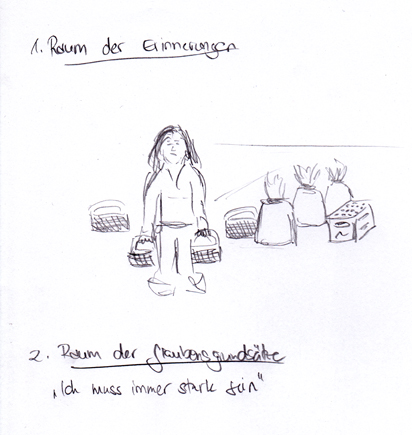 1. Raum der Erinnerungen
2. Raum der Glaubensgrundsätze
„Ich muss immer stark sein"